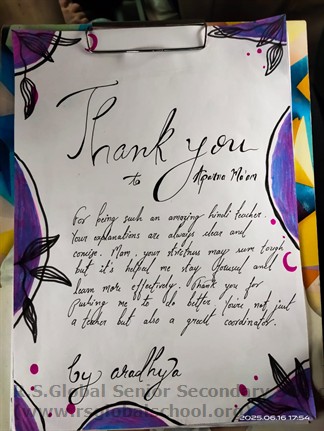 Thank you
to Aparna Ma'am
For being such an amazing hindi teacher.
Your explanations are always clear and
concise. Mam, your strictness may seem tough
but it's helped me stay focused and
learn more effectively. Thank you for
pushing me to do better. You're not just
a teacher but also a great coordinator.
by aradhya
R.S.Global Senior Secondary
www.rsglobalschool.org
2025.06.16 17:54